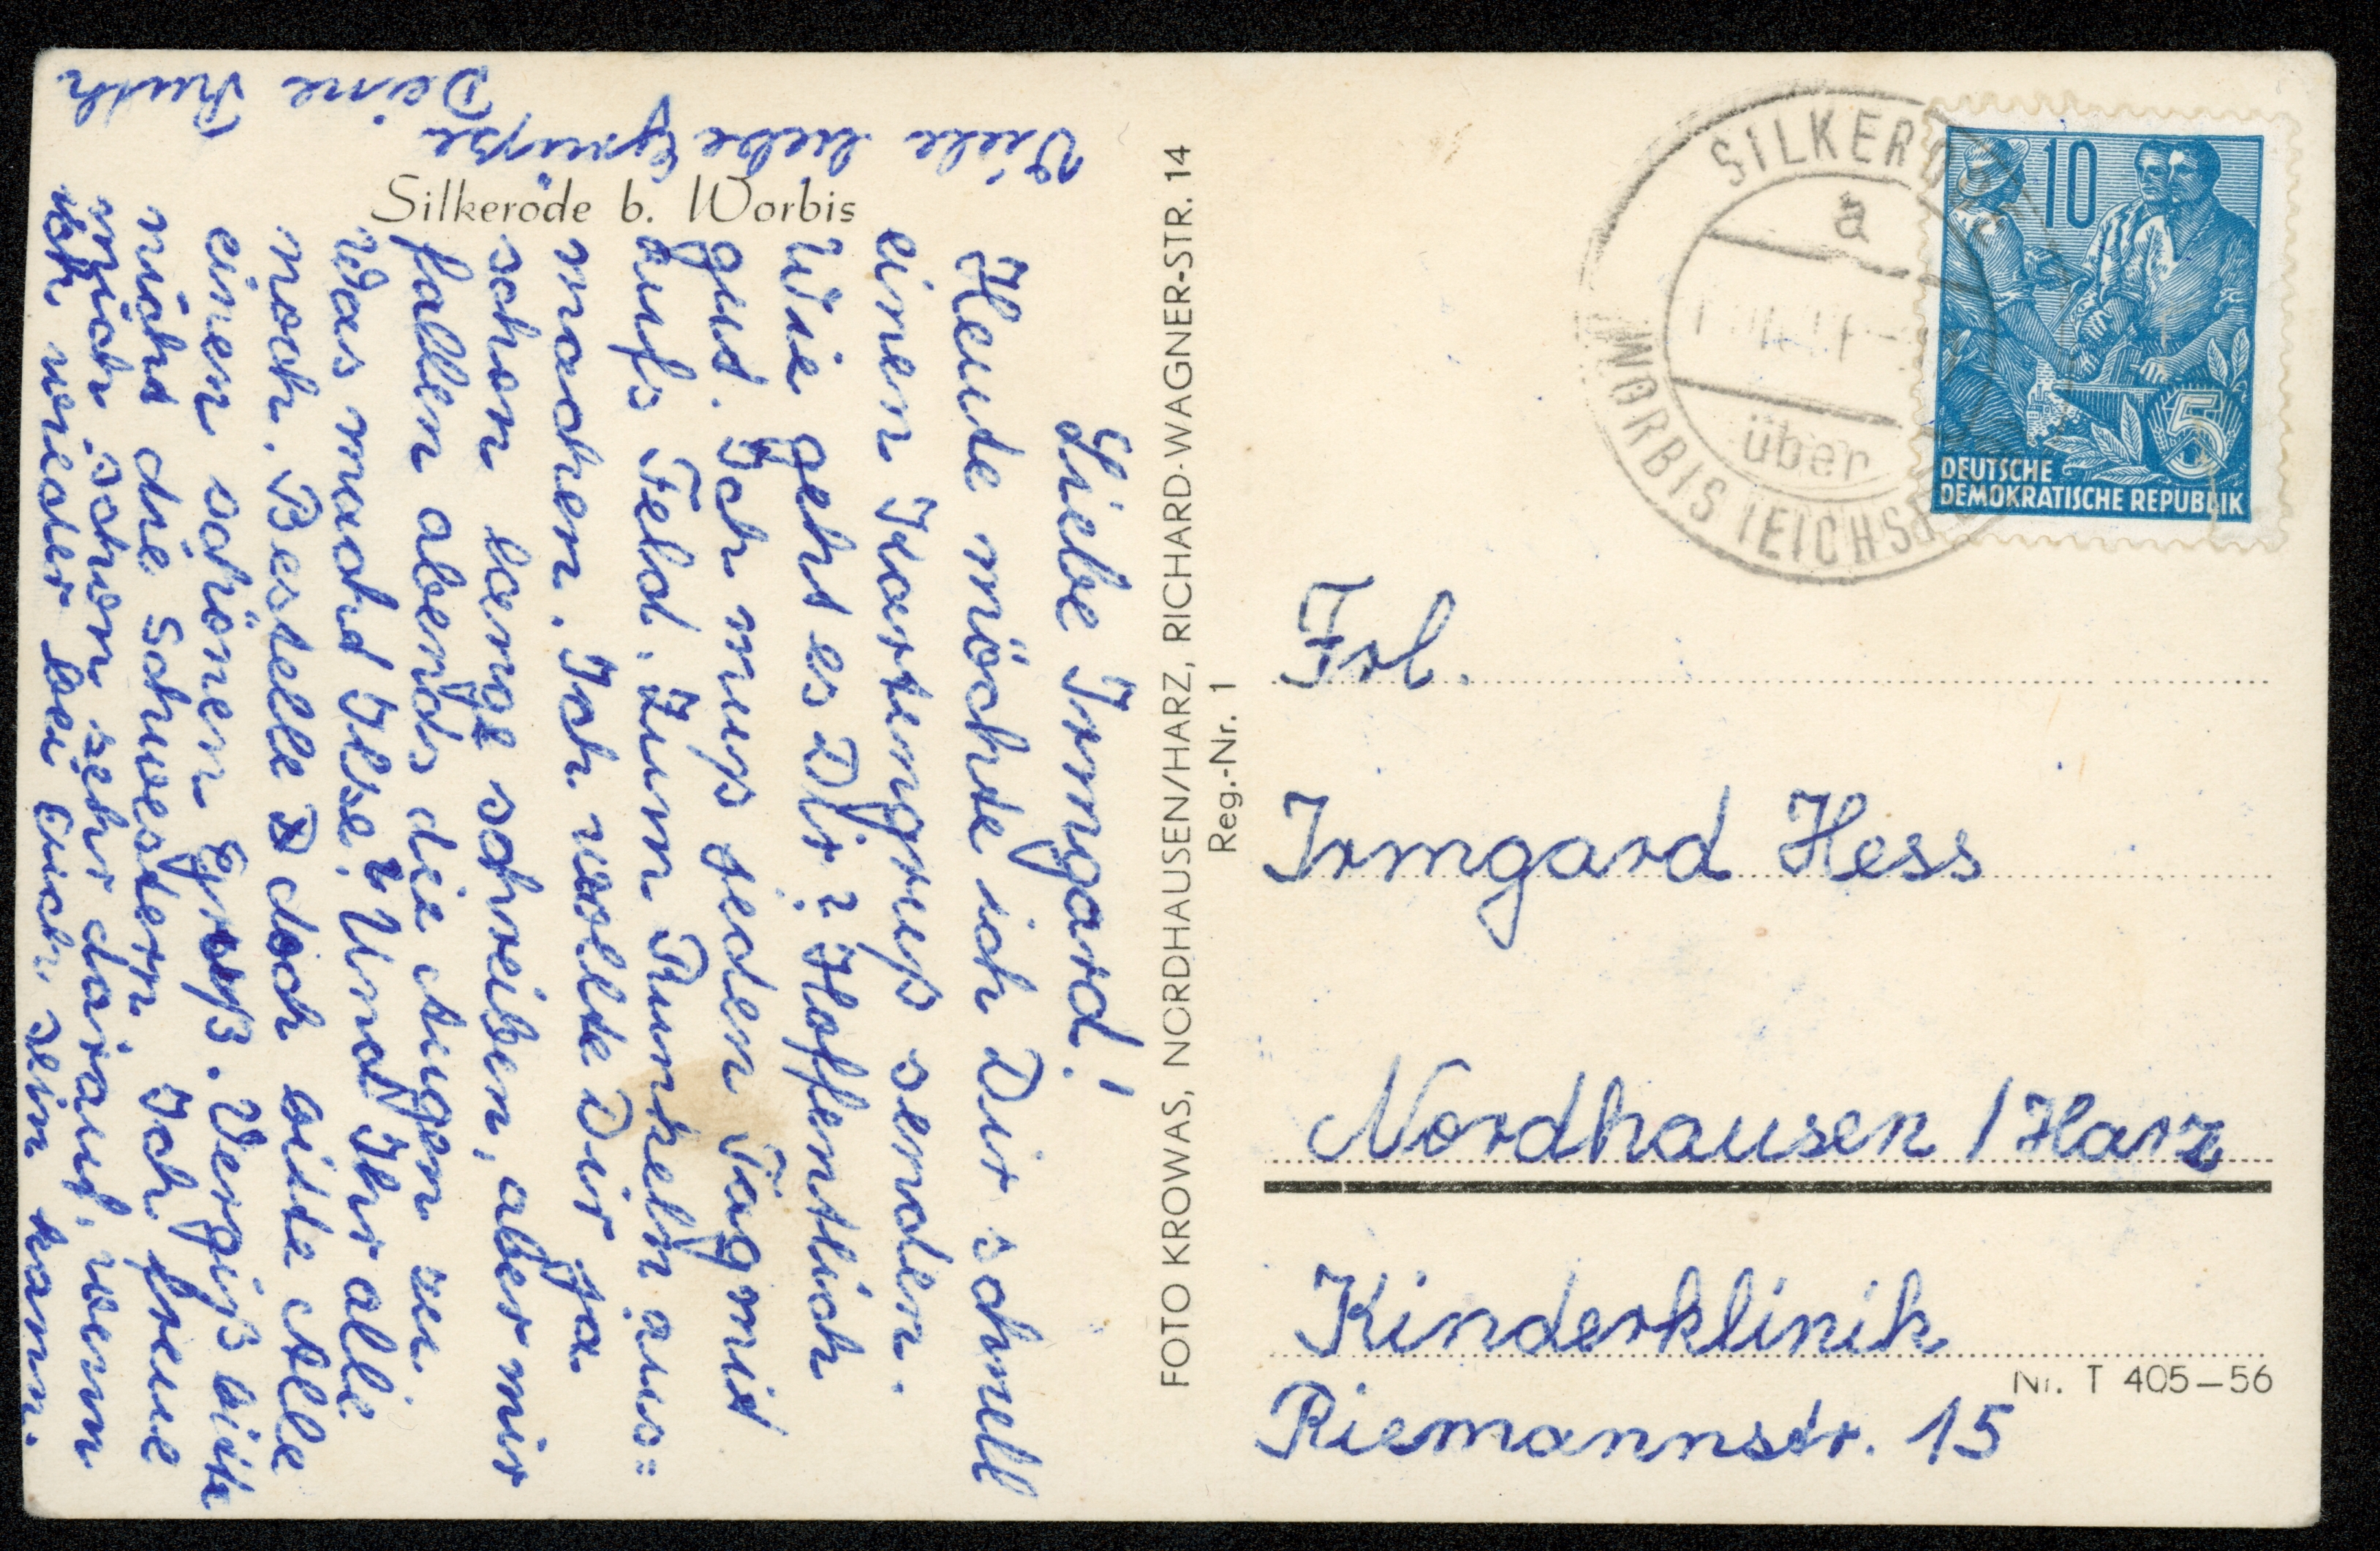 Silkerode b. Worbis
Liebe Irmgard!
Heute möchte ich Dir schnell
einen Kartengruß senden.
Wie geht es Dir? Hoffentlich
gut. Ich muß jeden Tag mit
aufs Feld. Zum Runkeln aus=
machen. Ich wollte Dir ja
schon lange schreiben, aber mir
fallen abends die Augen zu
Was macht Ilse? Und Ihr alle
noch. Bestelle doch bitte Alle
einen schönen Gruß. Vergiß bitte
nicht die Schwestern. Ich freue
mich schon sehr darauf, wenn
ich wieder bei Euch sein kann.
Viele liebe Grüße
Deine Ruth
FOTO KROWAS, NORDHAUSEN/HARZ, RICHARD-WAGNER-STR. 14
Reg.-Nr. 1
SILKERODE
a
über
WORBIS (EICHSF
10
5
DEUTSCHE
DEMOKRATISCHE REPUBLIK
Frl.
Irmgard Hess
Nordhausen / Harz
Kinderklinik
Nr. T 405–56
Riemannstr. 15